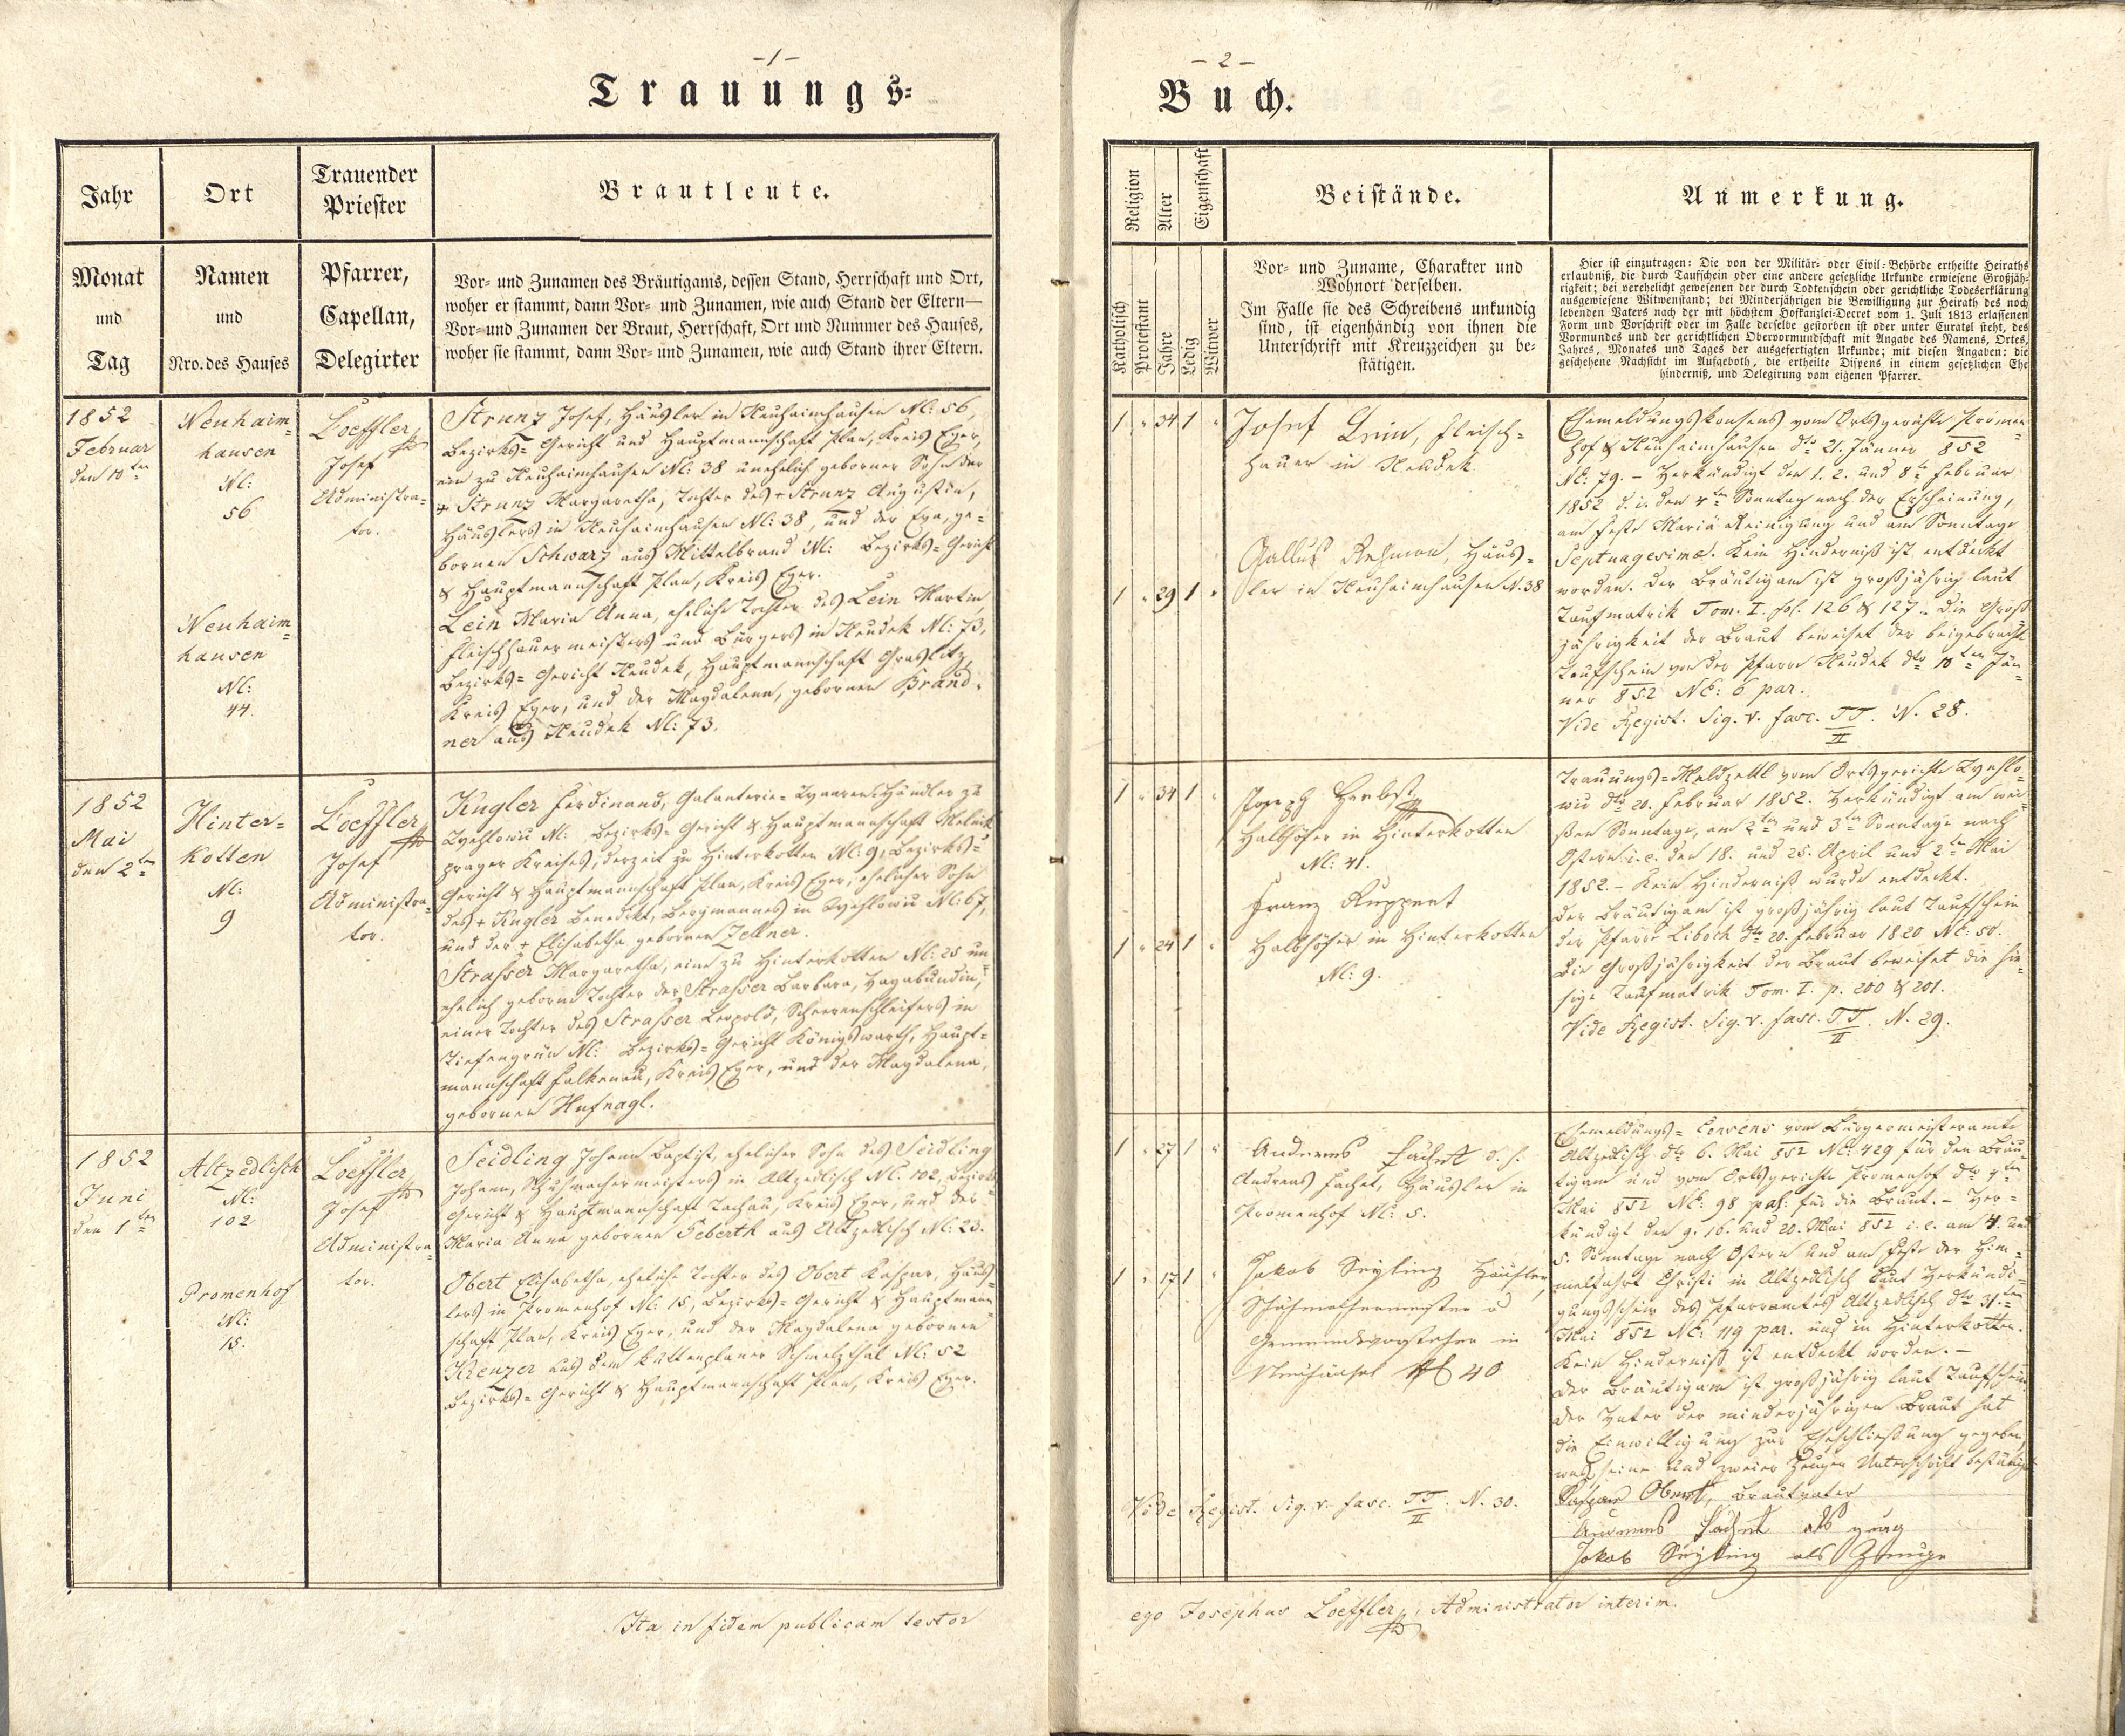 -1-
Trauungs-
Jahr
Ort
Trauender
Priester
Brautleute.
Monat
und
Tag
Namen
und
Nro. des Hauses
Pfarrer,
Capellan,
Delegirter
Vor- und Zunamen des Bräutigams, dessen Stand, Herrschaft und Ort,
woher er stammt, dann Vor- und Zunamen, wie auch Stand der Eltern—
Vor- und Zunamen der Braut, Herrschaft, Ort und Nummer des Hauses,
woher sie stammt, dann Vor- und Zunamen, wie auch Stand ihrer Eltern.
1852
Februar
den 10ten
Neuhaim-
hausen
N:
56
Neuhaim-
hausen
N:
44.
Loeffler
Josef
Administra-
tor.
Strunz Josef, Häusler in Neuhaimhausen N: 56,
Bezirks-Gericht und Hauptmannschaft Plan, Kreis Eger,
ein zu Neuhaimhausen N: 38 unehelich geborner Sohn der
+ Strunz Margaretha, Tochter des + Strunz Augustin,
Häuslers in Neuhaimhausen N: 38, und der Eva, ge-
bornen Schwarz aus Mittelbrand N: Bezirks-Gericht
& Hauptmannschaft Plan, Kreis Eger.
Lein Maria Anna, eheliche Tochter des Lein Martin,
Fleischhauermeisters und Bürgers in Neudek N: 73,
Bezirks-Gericht Neudek, Hauptmannschaft Graslitz,
Kreis Eger, und der Magdalena, gebornen Brand-
ner aus Neudek N: 73.
1852
Mai
den 2ten
Hinter-
kotten
N:
9
Loeffler
Josef
Administra-
tor.
Kugler Ferdinand, Galanterie-Waaren-Händler zu
N: Bezirks-Gericht & Hauptmannschaft Melnik
Prager Kreises, derzeit zu Hinterkotten N: 9, Bezirks-
Gericht & Hauptmannschaft Plan, Kreis Eger, ehelicher Sohn
des + Kugler Benedikt, Bergmannes in N: 67,
und der + Elisabetha gebornen Zellner.
Strasser Margaretha, eine zu Hinterkotten N: 25 un-
ehelich geborne Tochter der Strasser Barbara, Vagabundin,
einer Tochter des Strasser Leopold, Scheerenschleifers in
Tiefengrün N: Bezirks-Gericht Königswarth, Haupt-
mannschaft Falkenau, Kreis Eger, und der Magdalena,
gebornen Hufnagl.
1852
Juni
den 1ten
Altzedlisch
N:
102
Promenhof
N:
15.
Loeffler
Josef
Administra-
tor.
Seidling Johann Baptist, ehelicher Sohn des Seidling
Johann, Schuhmachermeisters in Altzedlisch N: 102, Bezirks-
Gericht & Hauptmannschaft Tachau, Kreis Eger, und der
Maria Anna gebornen Seberth aus Altzedlisch N: 23.
Obert Elisabetha, eheliche Tochter des Obert Kaspar, Häus-
lers in Promenhof N: 15, Bezirks-Gericht & Hauptmann-
schaft Plan, Kreis Eger, und der Magdalena gebornen
Krenzer aus dem Kuttenplaner Schmelzthal N: 52
Bezirks-Gericht & Hauptmannschaft Plan, Kreis Eger.
Ita in fidem publicam testor
-2-
Buch.
Religion
Alter
Eigenschaft
Beistände.
Anmerkung.
Katholisch
Protestant
Jahre
Ledig
Witwer
Vor- und Zuname, Charakter und
Wohnort derselben.
Im Falle sie des Schreibens unkundig
sind, ist eigenhändig von ihnen die
Unterschrift mit Kreuzzeichen zu be-
stätigen.
Hier ist einzutragen: Die von der Militär- oder Civil-Behörde ertheilte Heiraths-
erlaubniß, die durch Taufschein oder eine andere gesetzliche Urkunde erwiesene Großjäh-
rigkeit; bei verehelicht gewesenen der durch Todtenschein oder gerichtliche Todeserklärung
ausgewiesene Witwenstand; bei Minderjährigen die Bewilligung zur Heirath des noch
lebenden Vaters nach der mit höchstem Hofkanzlei-Decret vom 1. Juli 1813 erlassenen
Form und Vorschrift oder im Falle derselbe gestorben ist oder unter Curatel steht, des
Vormundes und der gerichtlichen Obervormundschaft mit Angabe des Namens, Ortes,
Jahres, Monates und Tages der ausgefertigten Urkunde; mit diesen Angaben: die
geschehene Nachsicht im Aufgeboth, die ertheilte Dispens in einem gesetzlichen Ehe-
hinderniß, und Delegirung vom eigenen Pfarrer.
1 " 34 1 "
Josef Lein, Fleisch-
hauer in Neudek
1 " 29 1 "
Gallus, Häus-
ler in Neuhaimhausen N. 38
Ehemeldungskonsens vom Ortsgerichte Promen-
hof & Neuhaimhausen dto 21. Jänner 852
N: 79. – Verkündigt den 1. 2. und 8ten Februar
1852 d. i. den 4ten Sonntag nach der Erscheinung,
am Feste Mariä Reinigung und am Sonntage
Septuagesima. Kein Hinderniß ist entdeckt
worden. Der Bräutigam ist großjährig laut
Taufmatrik Tom. I. fol. 126 & 127. Die Groß-
jährigkeit der Braut beweiset der beigebrachte
Taufschein von der Pfarre Neudek dto 10ten Jän-
ner 852 N: 6 par.
Vide Regist. Sig. v. fasc. TT/II. N. 28.
1 " 34 1 "
Joseph Herbst
Halbhöfer in Hinterkotten
N: 41.
1 " 24 1 "
Franz Ruppert
Halbhöfer in Hinterkotten
N: 9.
Trauungs-Meldzettl vom Ortsgerichte
dto 20. Februar 1852. Verkündigt am wei-
ßen Sonntage, am 2ten und 3ten Sonntage nach
Ostern i. e. den 18. und 25. April und 2ten Mai
1852. – Kein Hinderniß wurde entdeckt.
Der Bräutigam ist großjährig laut Taufschein
der Pfarre Liboch dto 20. Februar 1820 N: 50.
Die Großjährigkeit der Braut beweiset die hie-
sige Taufmatrik Tom. I. p. 200 & 201.
Vide Regist. Sig. v. fasc. TT/II. N. 29.
1 " 27 1 "
Andreas Fachet d. h.
Andreas Fachet, Häusler in
Promenhof N: 5.
1 " 17 1 "
Jakob Seyling Häusler,
Schuhmachermeister u
Gemeindevorsteher in
N 40
Ehemeldungs-Consens vom Bürgermeisteramte
Altzedlisch dto 6. Mai 852 N: 429 für den Bräu-
tigam und vom Ortsgerichte Promenhof dto 4ten
Mai 852 N: 98 pol: für die Braut. – Ver-
kündigt den 9. 16. und 20. Mai 852 i. e. am 4. und
5. Sonntage nach Ostern und am Feste der Him-
melfahrt Christi in Altzedlisch laut Verkündi-
gungsschein des Pfarramtes Altzedlisch dto 31.ten
Mai 852 N: 119 par. und in Hinterkotten.
Kein Hinderniß ist entdeckt worden. –
Der Bräutigam ist großjährig laut Taufschein.
Der Vater der minderjährigen Braut hat
die Einwilligung zur Eheschließung gegeben,
was seine und zweier Zeugen Unterschrift bestätigt
Kaspar Obert, Brautvater
Andreas Fachet als zeug
Jakob Seyling als Zeuge
Vide Regist. Sig. v. fasc. TT/II. N. 30.
ego Josephus Loeffler, Administrator interim.